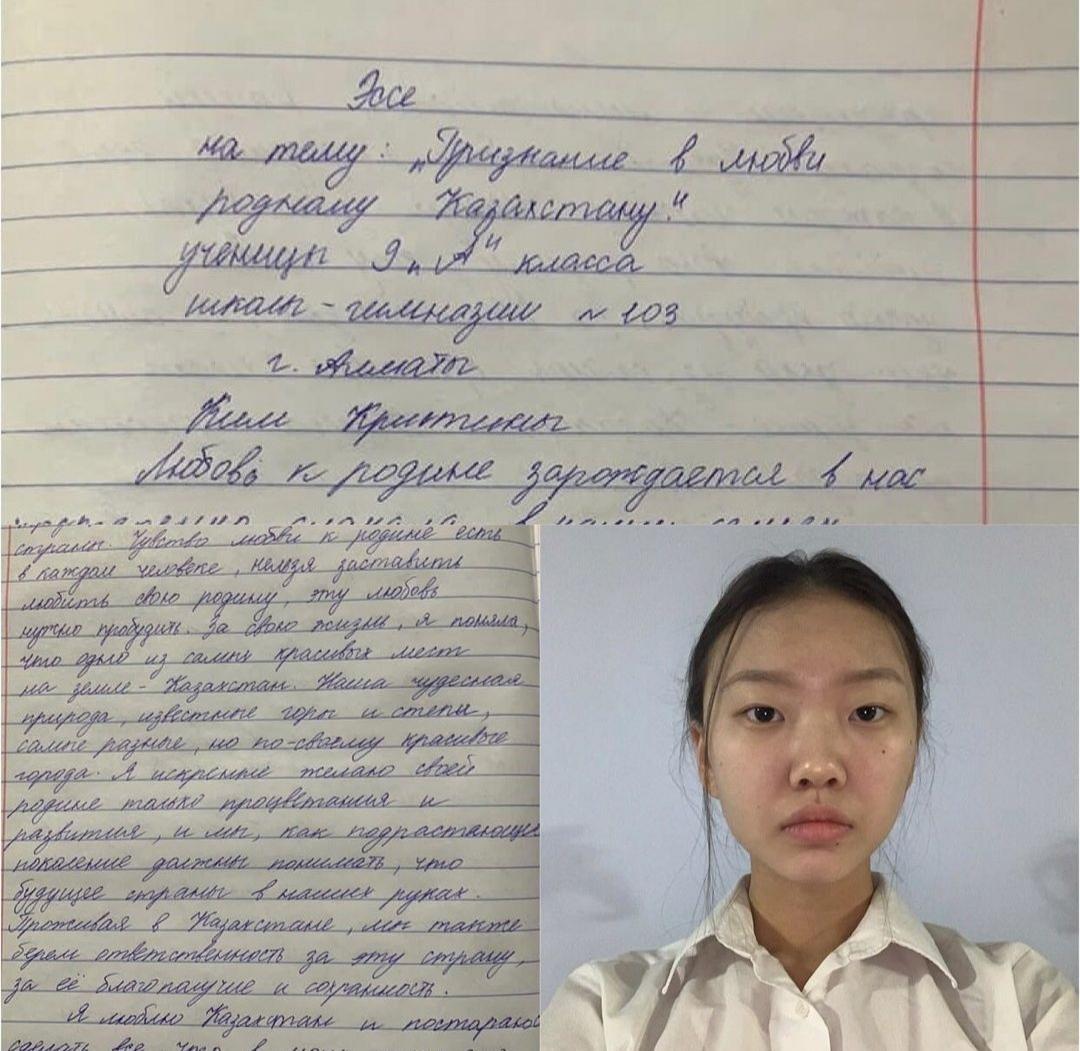 Эссе
на тему: „Признание в любви
родному Казахстану."
ученицы 9 „А" класса
школы-гимназии № 103
г. Алматы
Ким Кристины
Любовь к родине зарождается в нас
страны. Чувство любви к родине есть
в каждом человеке, нельзя заставить
любить свою родину, эту любовь
нужно пробудить. За свою жизнь, я поняла,
что одно из самых красивых мест
на земле - Казахстан. Наша чудесная
природа, известные горы и степи,
самые разные, но по-своему красивые
города. Я искренне желаю своей
родине только процветания и
развития, и мы, как подрастающее
поколение должны понимать, что
будущее страны в наших руках.
Проживая в Казахстане, мы также
берем ответственность за эту страну,
за её благополучие и сохранность.
Я люблю Казахстан и постараюсь
сделать все, что в